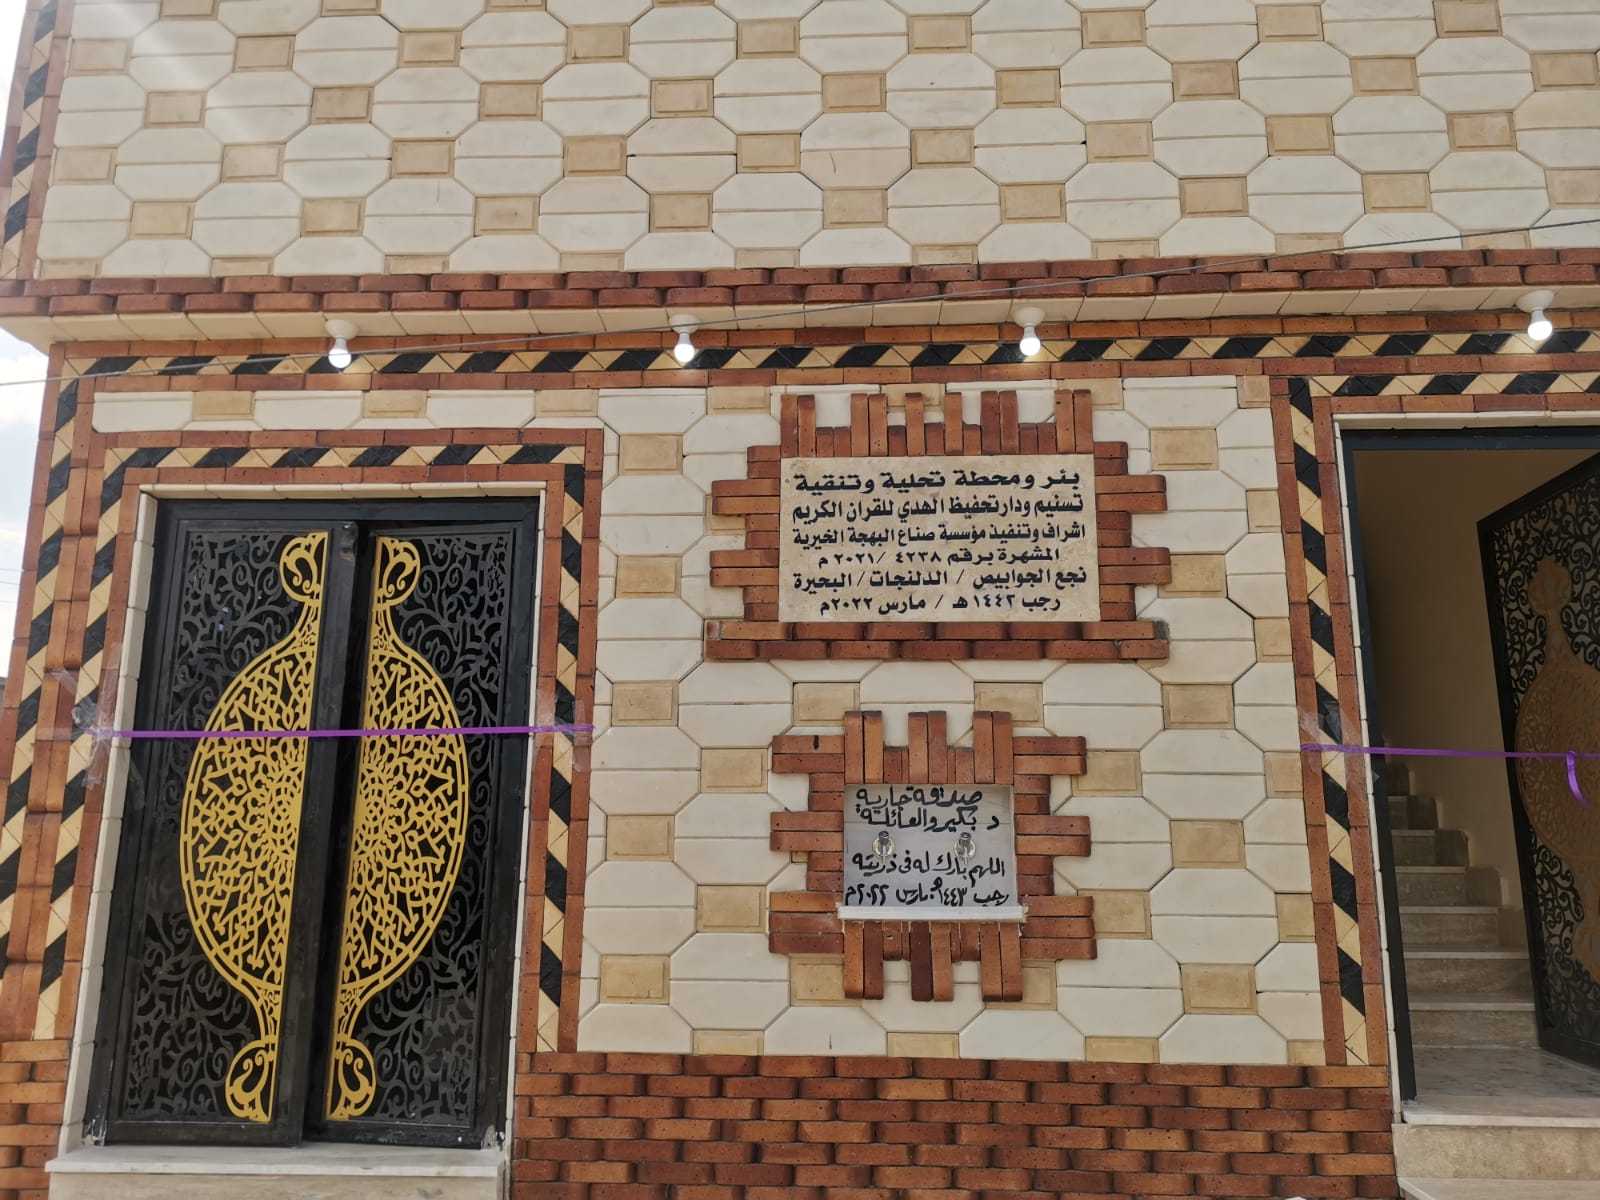 بئر ومحطة تحلية وتنقية
تسنيم ودار تحفيظ الهدي للقران الكريم
اشراف وتنفيذ مؤسسة صناع البهجة الخيرية
المشهرة برقم ٤٢٣٨ /٢٠٢١ م
نجع الجوابيص / الدلنجات / البحيرة
رجب ١٤٤٣ هـ / مارس ٢٠٢٢م
صدقة جارية
د بكير والعائلة
اللهم بارك له فى ذريته
رجب ١٤٤٣هـ مارس ٢٠٢٢م